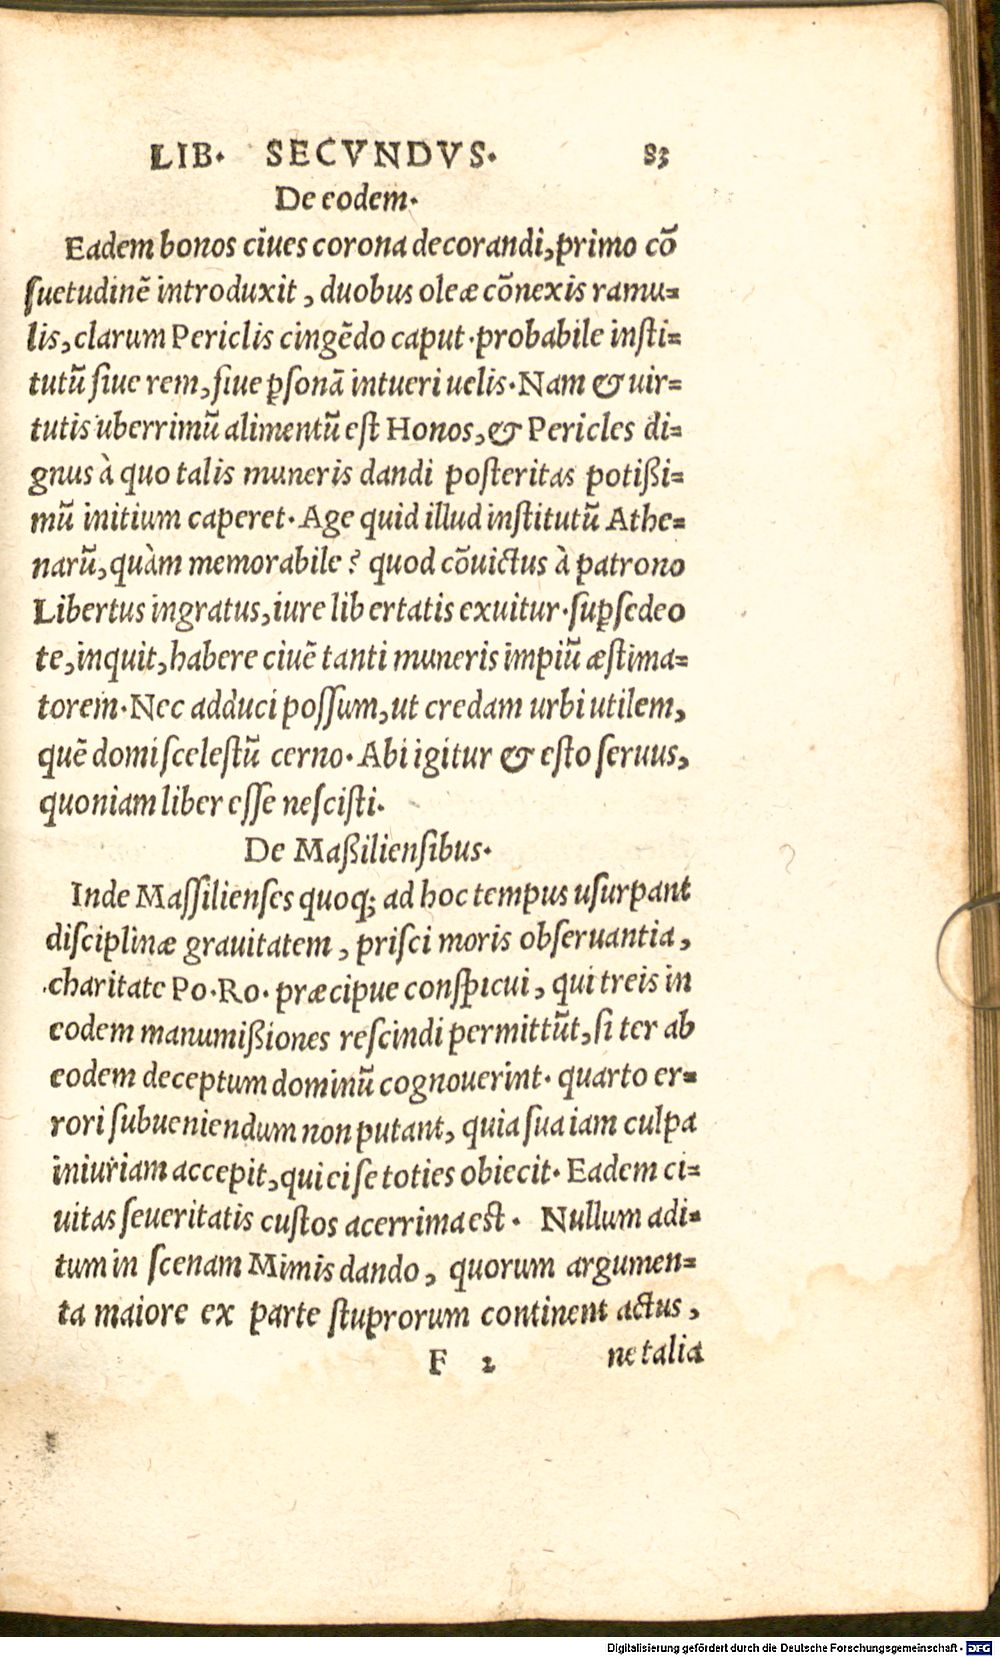 LIB. SECVNDVS. 83
De eodem.
Eadem bonos ciues corona decorandi, primo cō
ſuetudinē introduxit, duobus oleæ cōnexis ramu=
lis, clarum Periclis cingēdo caput. probabile inſti=
tutū ſiue rem, ſiue ꝑſonā intueri uelis. Nam & uir=
tutis uberrimū alimentū eſt Honos, & Pericles di=
gnus à quo talis muneris dandi poſteritas potißi=
mū initium caperet. Age quid illud inſtitutū Athe=
narū, quàm memorabile? quod cōuictus à patrono
Libertus ingratus, iure libertatis exuitur. ſuꝑſedeo
te, inquit, habere ciuē tanti muneris impiū æſtima=
torem. Nec adduci poſſum, ut credam urbi utilem,
quē domi ſceleſtū cerno. Abi igitur & eſto ſeruus,
quoniam liber eſſe neſciſti.
De Maßilienſibus.
Inde Maſſilienſes quoq; ad hoc tempus uſurpant
diſciplinæ grauitatem, priſci moris obſeruantia,
charitate Po. Ro. præcipue conſpicui, qui treis in
eodem manumißiones reſcindi permittūt, ſi ter ab
eodem deceptum dominū cognouerint. quarto er=
rori ſubueniendum non putant, quia ſua iam culpa
iniuriam accepit, qui ei ſe toties obiecit. Eadem ci=
uitas ſeueritatis cuſtos acerrima est. Nullum adi=
tum in ſcenam Mimis dando, quorum argumen=
ta maiore ex parte ſtuprorum continent actus,
F 2 ne talia
Digitalisierung gefördert durch die Deutsche Forschungsgemeinschaft - DFG